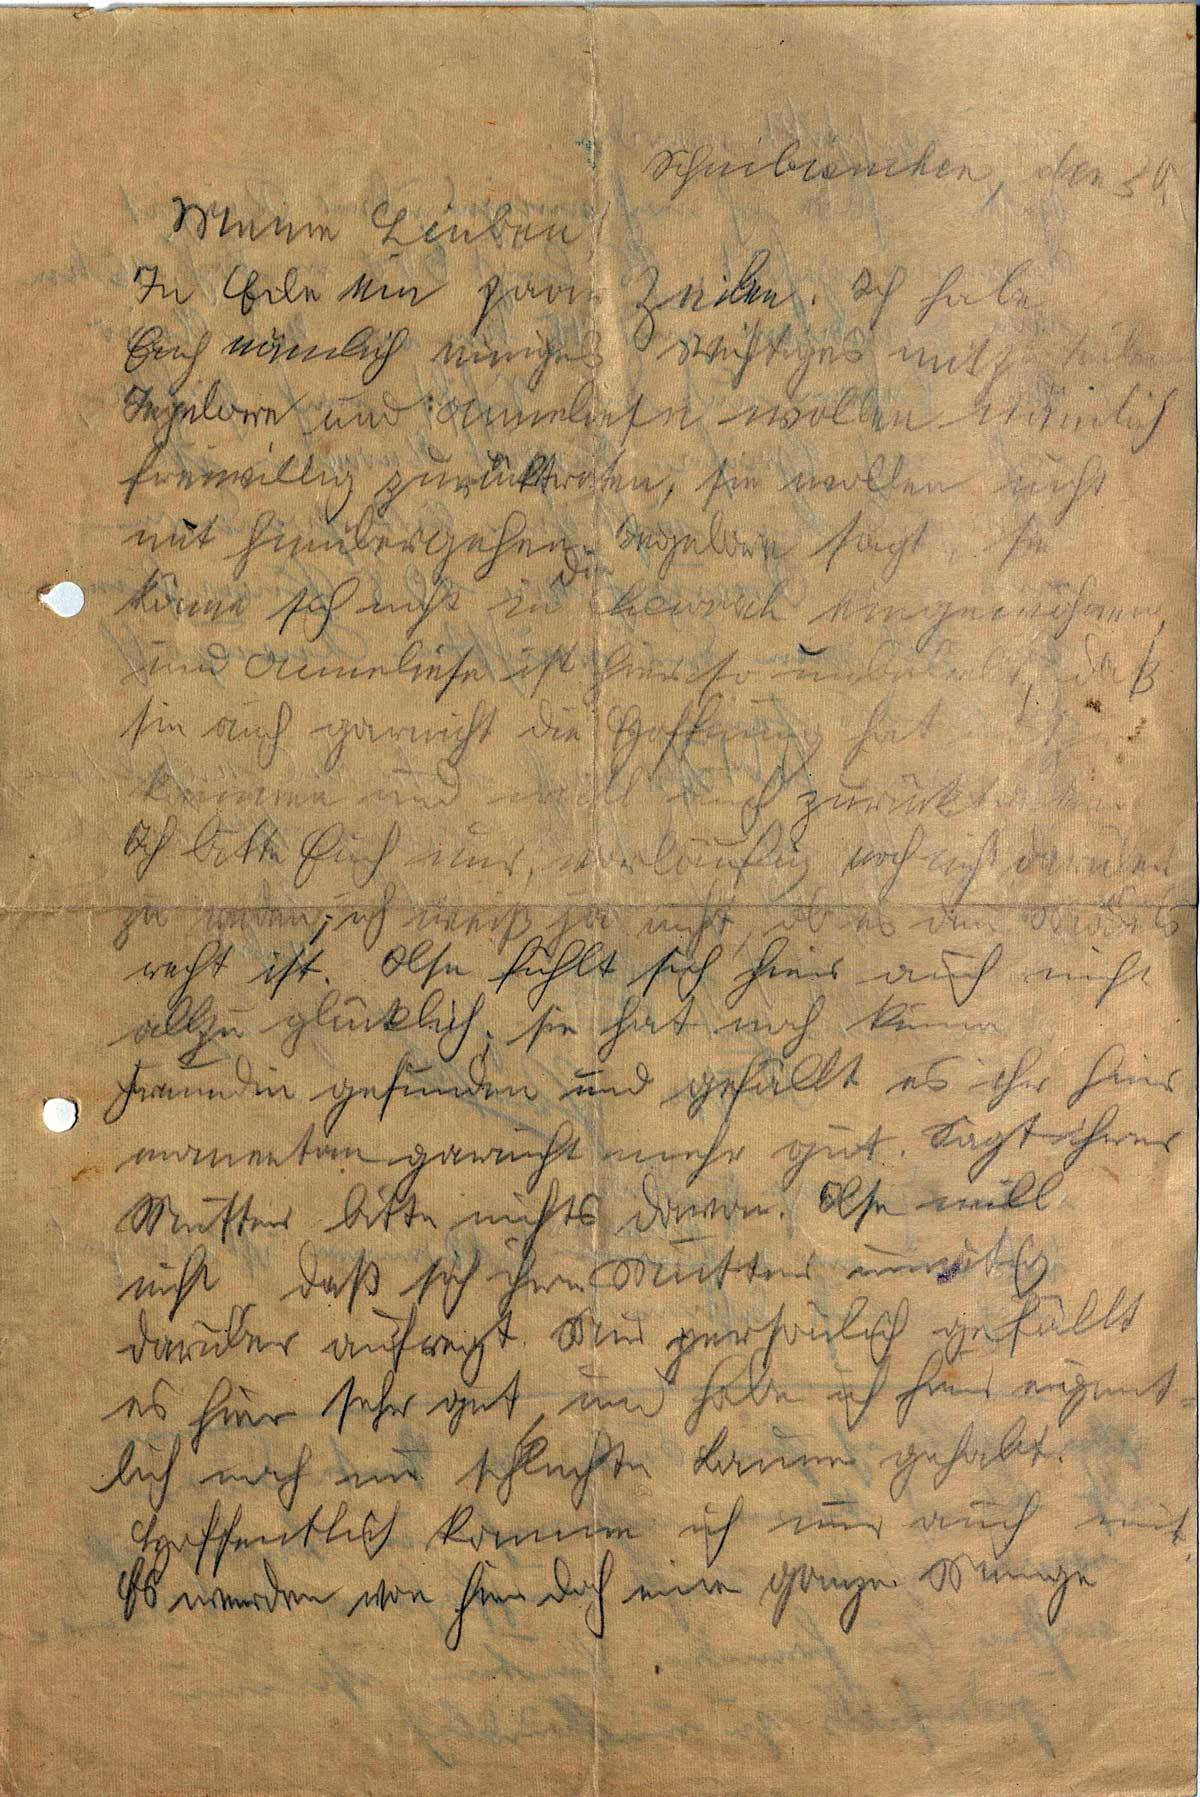 Schniebinchen, den 30.
Meine Lieben!
In Eile ein paar Zeilen. Ich habe
Euch nämlich einiges Wichtiges mitzuteilen
Ingelore und Anneliese wollen nämlich
freiwillig zurücktreten, sie wollen nicht
mit hinübergehen. Ingelore sagt, sie
könne sich nicht in die eingewöhnen,
und Anneliese ist hier so unbeliebt, daß
sie auch garnicht die Hoffnung hat mitzu
kommen und will auch zurücktreten
Ich bitte Euch nur, vorläufig noch nicht darüber
zu reden, ich weiß ja nicht, ob es den Mädels
recht ist. Ilse fühlt sich hier auch nicht
allzu glücklich, sie hat noch keine
Freundin gefunden und gefällt es ihr hier
momentan garnicht mehr gut. Sagt ihrer
Mutter bitte nichts davon. Ilse will
nicht daß sich ihre Mutter unnötig
darüber aufregt. Mir persönlich gefällt
es hier sehr gut, und habe ich hier eigent-
lich noch nie schlechte Laune gehabt.
Hoffentlich komme ich nur auch mit.
Es werden von hier doch eine ganze Menge